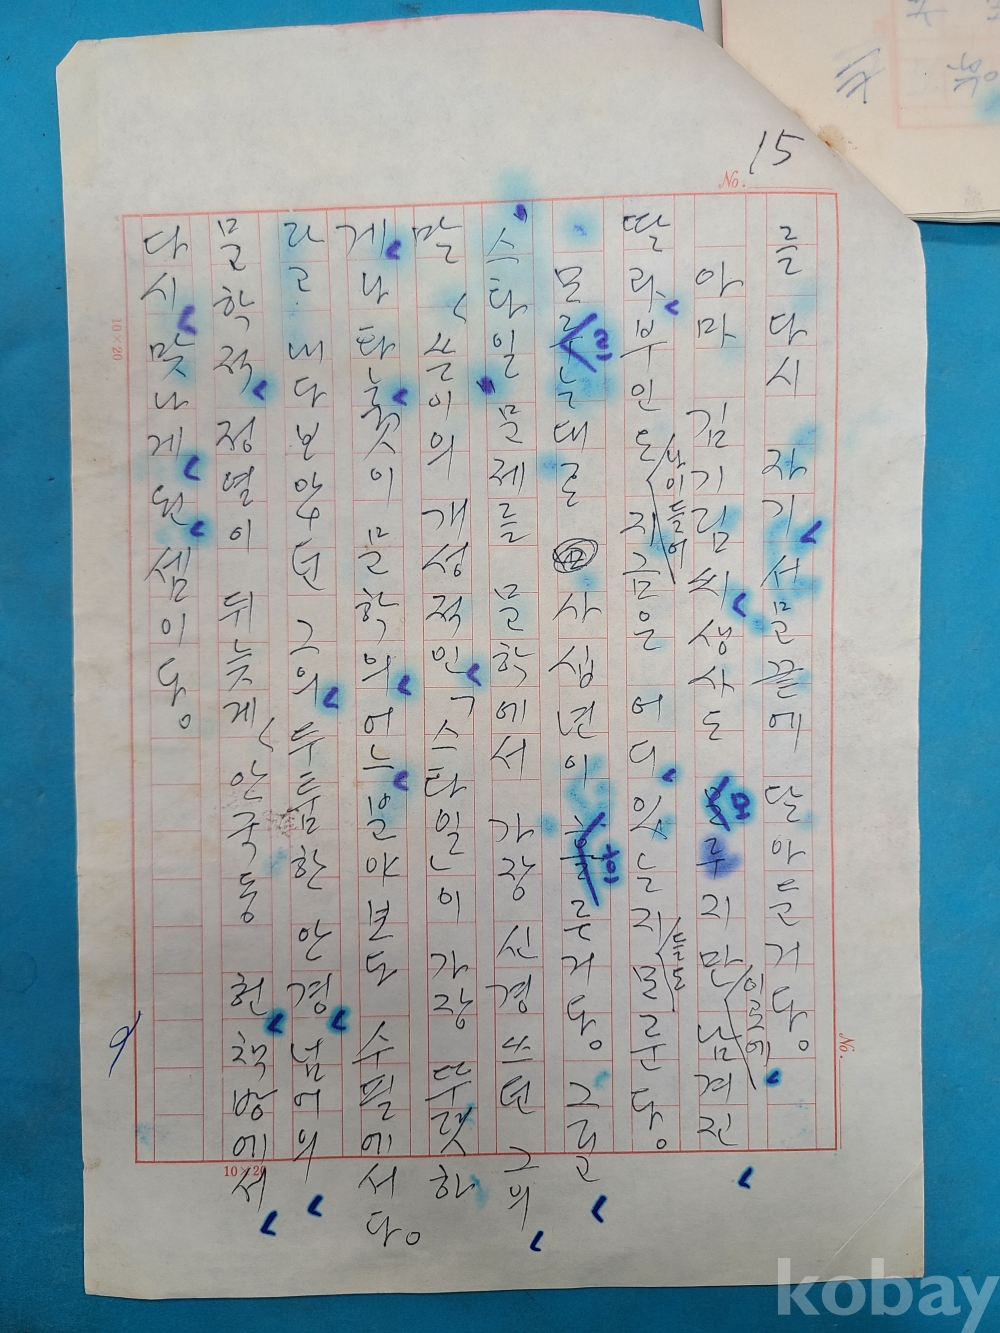 15
No.
를 다시 자기 서문 끝에 달아 둔거다.
아마 김기림 씨 생사도 모르지만 남겨진
이북에
딸라 부인도 지금은 어디 있는지 모른다.
나이 들어
들도
모르는대로 사십년이 흐른거다. 그런
"스타일" 문제를 문학에서 가장 신경 쓰던 그의
말 쓴이의 개성적인 「스타일」이 가장 뚜렷하
게 나타난 것이 문학의 어느 분야보다 수필에서다.
라고 내다 보았던 그의 두툼한 안경 넘어의
문학적 정열이 뒤늦게 안국동 헌책방에서
다시 만나게 된 셈이다.
10×20
10×20
No.
kobay